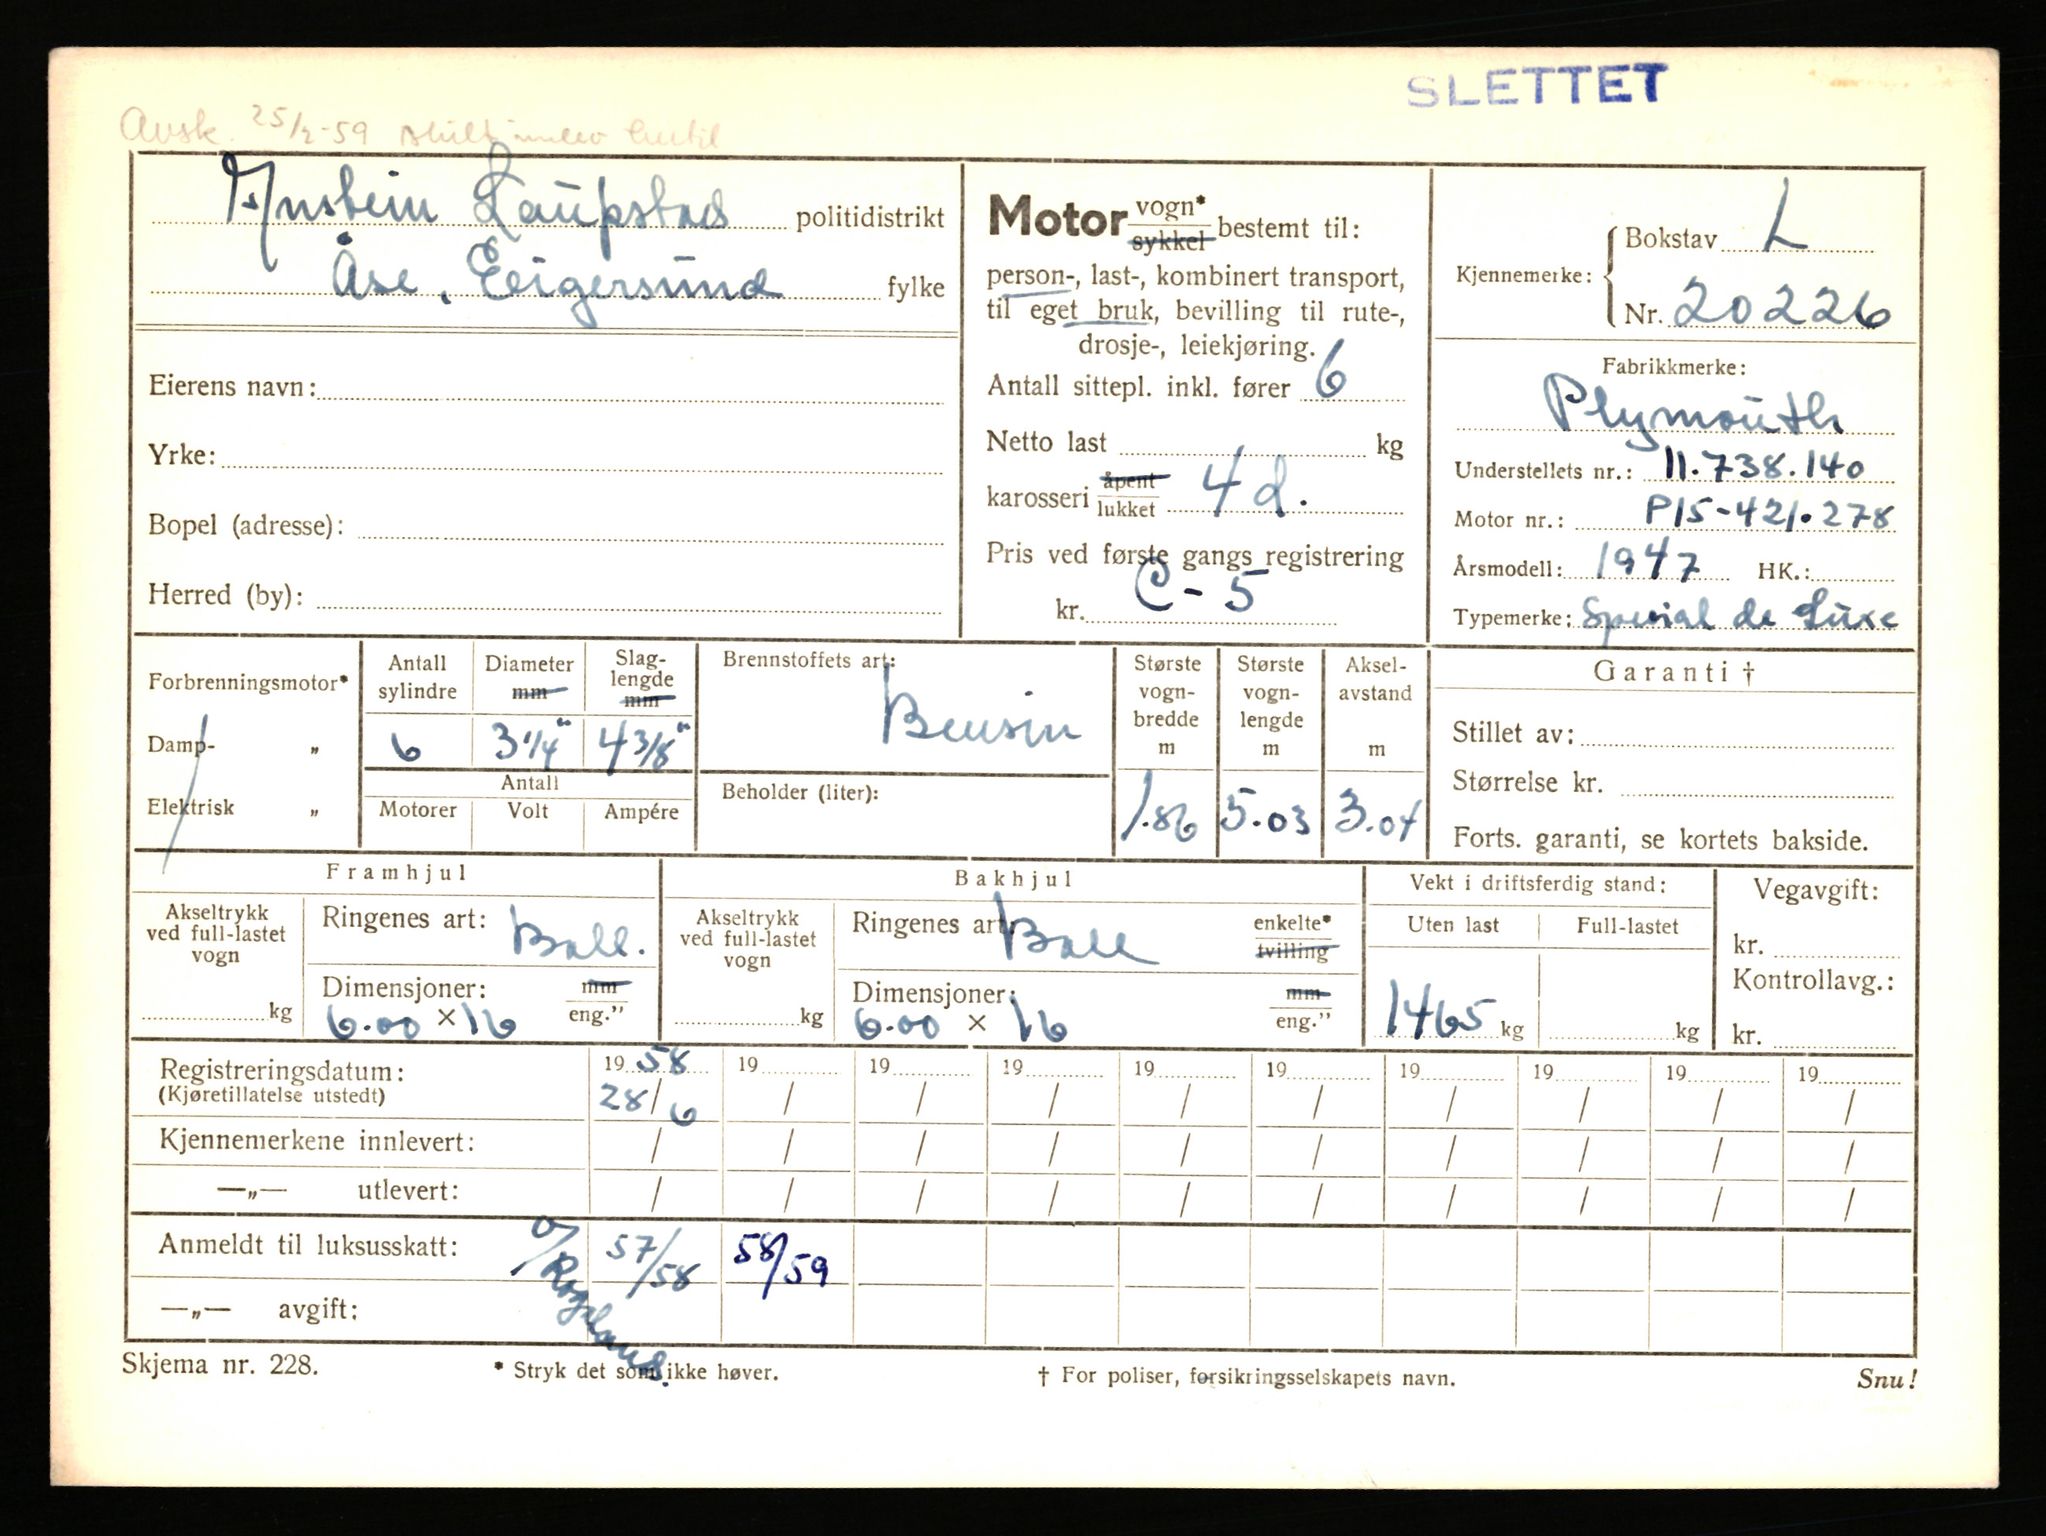 SLETTET
Avsk. 25/2-59
Arnstein Laupstad politidistrikt
Åse, Eigersund fylke
Eierens navn:
Yrke:
Bopel (adresse):
Herred (by):
Motor vogn* sykkel bestemt til:
person-, last-, kombinert transport,
til eget bruk, bevilling til rute-,
drosje-, leiekjøring.
Antall sittepl. inkl. fører 6
Netto last kg
karosseri åpent lukket 4 d.
Pris ved første gangs registrering
kr. C-5
Kjennemerke: Bokstav L
Nr. 20226
Fabrikkmerke:
Plymouth
Understellets nr.: 11.738.140
Motor nr.: P15-421.278
Årsmodell: 1947 HK.:
Typemerke: Spesial de Luxe
Forbrenningsmotor*
Damp- "
Elektrisk "
Antall sylindre
6
Diameter mm
3 1/4"
Slag-lengde mm
4 3/8"
Antall
Motorer Volt Ampére
Brennstoffets art:
Bensin
Beholder (liter):
Største vogn-bredde m
1.86
Største vogn-lengde m
5.03
Aksel-avstand m
3.04
Garanti †
Stillet av:
Størrelse kr.
Forts. garanti, se kortets bakside.
Framhjul
Akseltrykk ved full-lastet vogn
kg
Ringenes art: Ball.
Dimensjoner: mm eng."
6.00 × 16
Bakhjul
Akseltrykk ved full-lastet vogn
kg
Ringenes art: Ball enkelte* tvilling
Dimensjoner: mm eng."
6.00 × 16
Vekt i driftsferdig stand:
Uten last Full-lastet
1465 kg kg
Vegavgift:
kr.
Kontrollavg.:
kr.
Registreringsdatum: 19 58 19 19 19 19 19 19 19 19 19
(Kjøretillatelse utstedt) 28/6 / / / / / / / / /
Kjennemerkene innlevert: / / / / / / / / / /
—„— utlevert: / / / / / / / / / /
Anmeldt til luksusskatt: o/Rogaland. 57/58 58/59
—„— avgift:
Skjema nr. 228. * Stryk det som ikke høver. † For poliser, forsikringsselskapets navn. Snu!